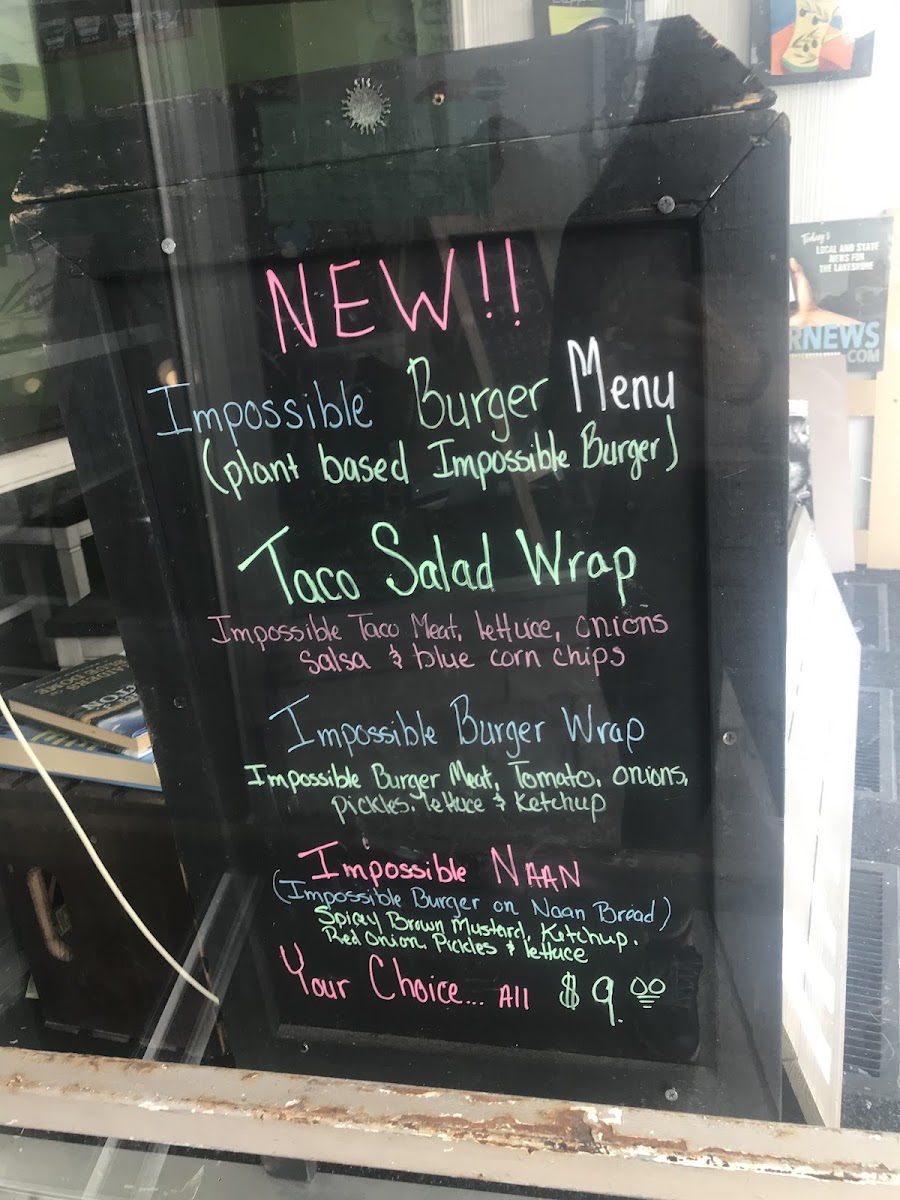 NEW!!
Impossible Burger Menu
(plant based Impossible Burger)
Taco Salad Wrap
Impossible Taco Meat, lettuce, onions
Salsa & blue corn chips
Impossible Burger Wrap
Impossible Burger Meat, Tomato, onions,
pickles, lettuce & Ketchup
Impossible NAAN
(Impossible Burger on Naan Bread)
Spicey Brown Mustard, Ketchup,
Red Onion Pickles & lettuce
Your Choice... All $9.00
Today's
LOCAL AND STATE
NEWS FOR
THE LAKESHORE
RNEWS
.COM